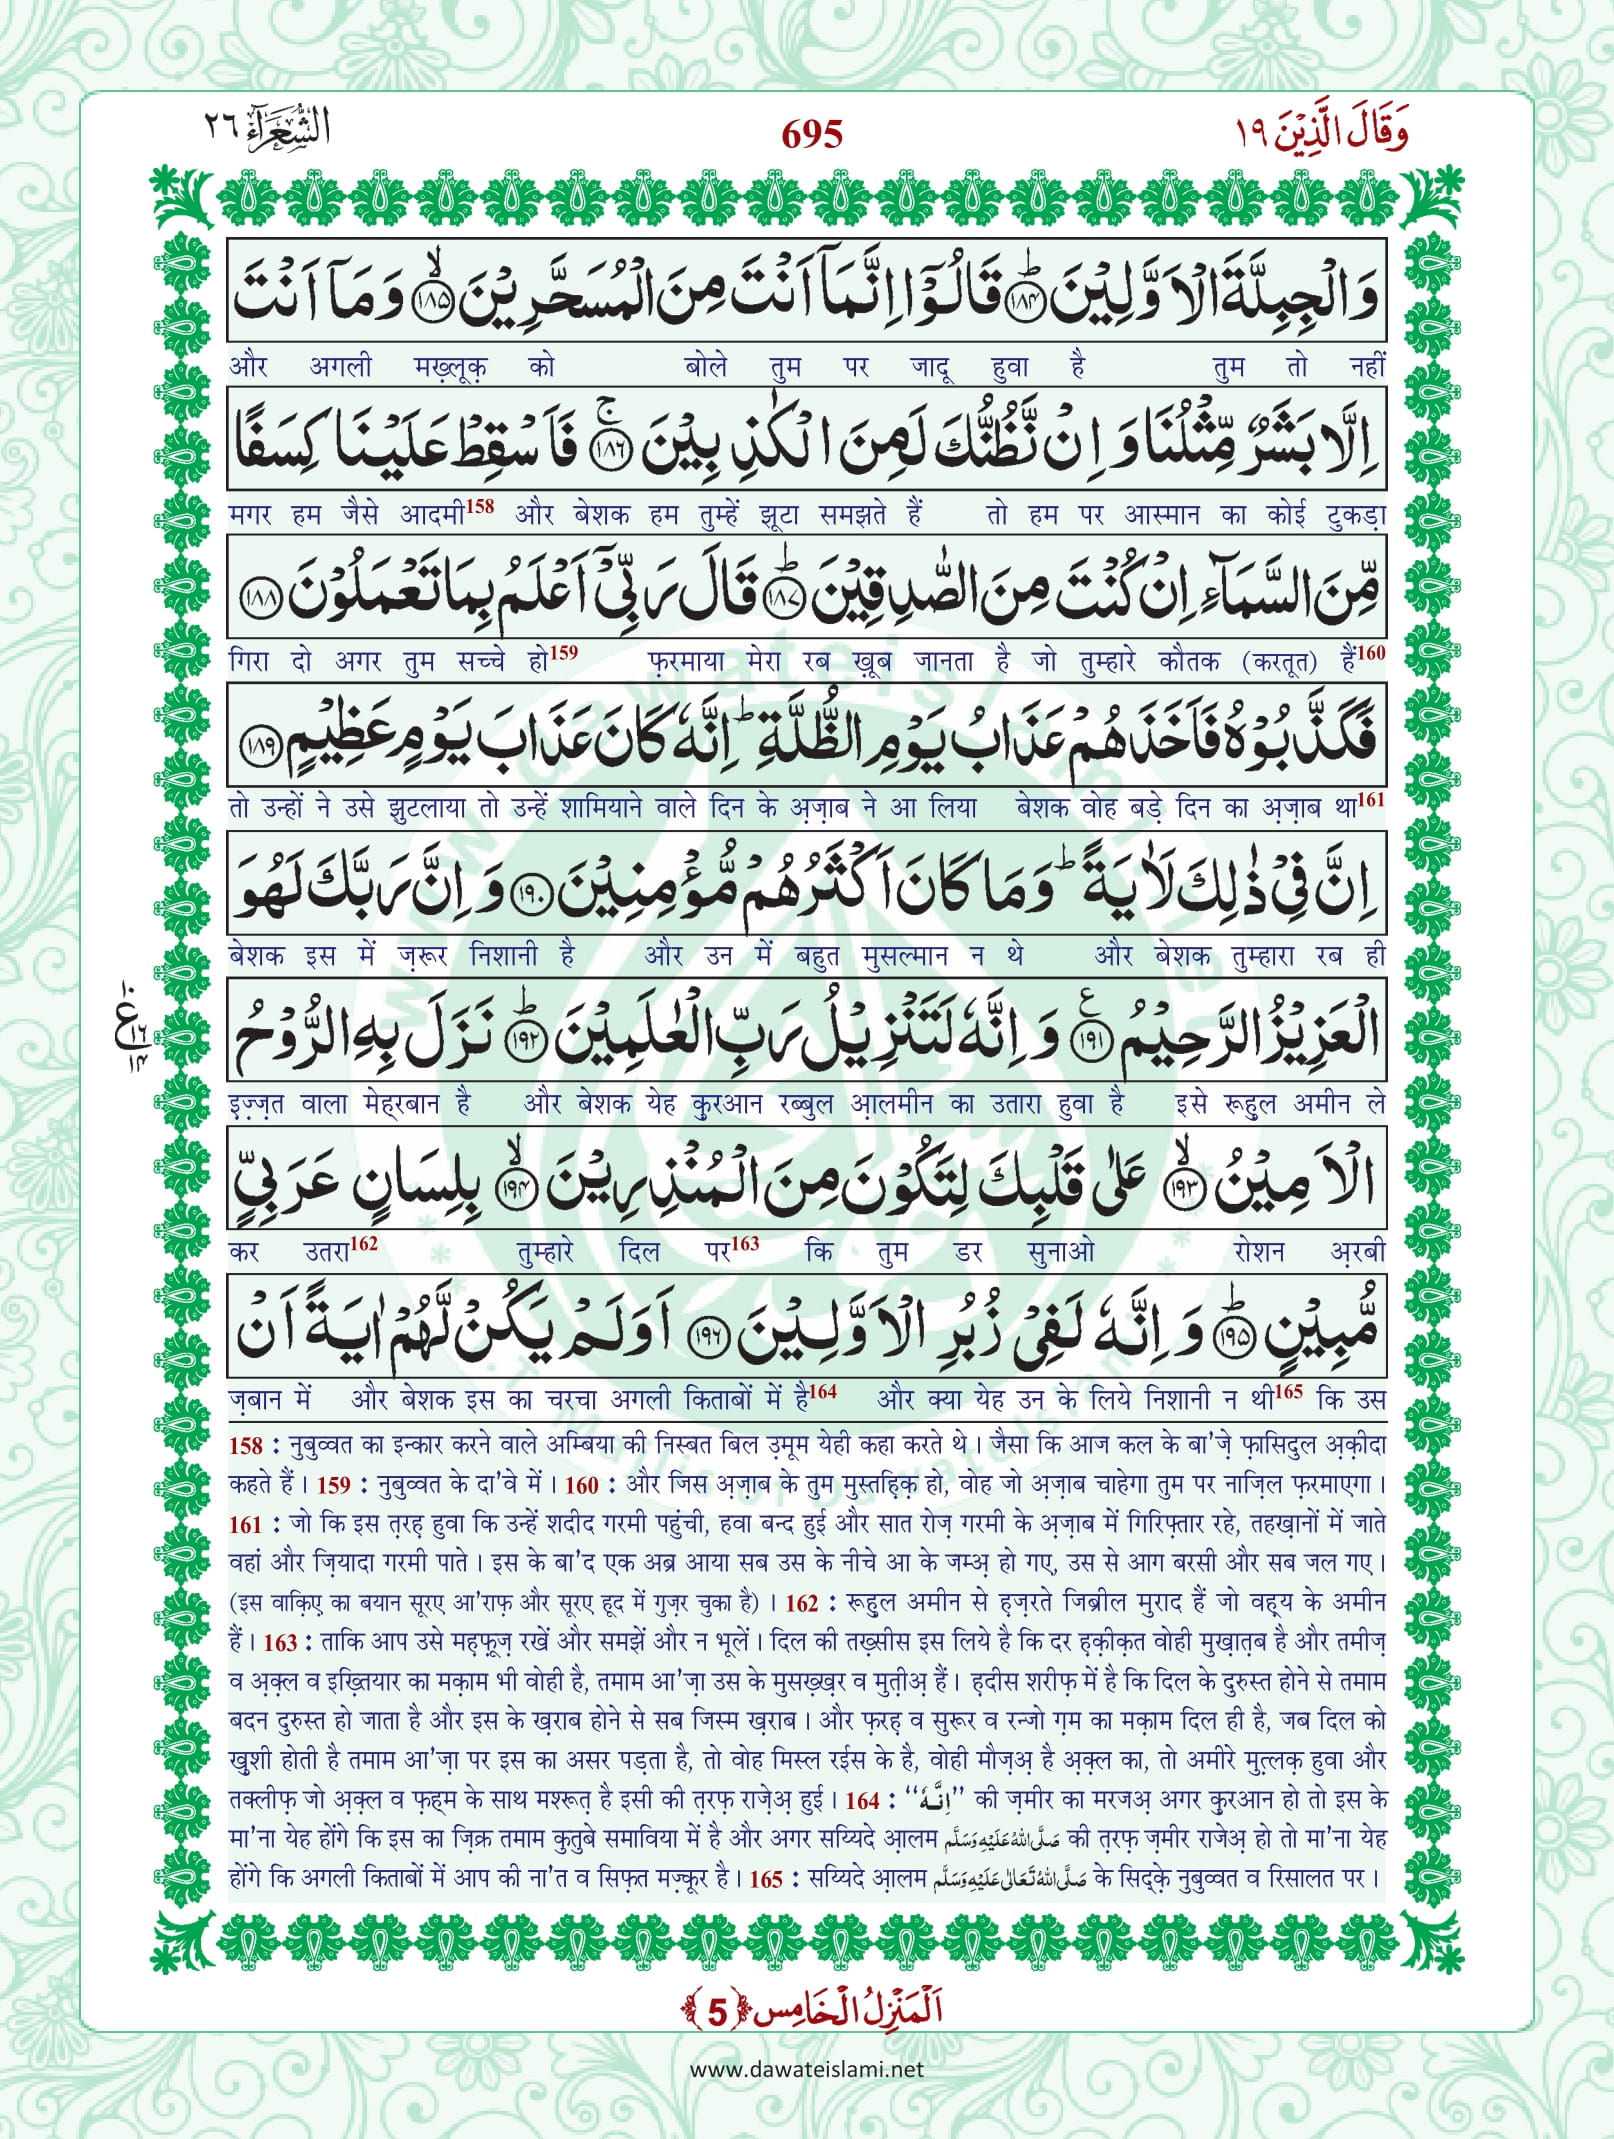 وَقَالَ الَّذِیْنَ ۱۹
695
الشُّعَرَآء ۲۶
وَالْجِبِلَّةَ الْاَوَّلِیْنَ ؕ﴿۱۸۴﴾ قَالُوْۤا اِنَّمَاۤ اَنْتَ مِنَ الْمُسَحَّرِیْنَ ۙ﴿۱۸۵﴾ وَمَاۤ اَنْتَ
और अगली मख़्लूक़ को बोले तुम पर जादू हुवा है तुम तो नहीं
اِلَّا بَشَرٌ مِّثْلُنَا وَ اِنْ نَّظُنُّكَ لَمِنَ الْكٰذِبِیْنَ ۚ﴿۱۸۶﴾ فَاَسْقِطْ عَلَیْنَا كِسَفًا
मगर हम जैसे आदमी158 और बेशक हम तुम्हें झूटा समझते हैं तो हम पर आस्मान का कोई टुकड़ा
مِّنَ السَّمَآءِ اِنْ كُنْتَ مِنَ الصّٰدِقِیْنَ ؕ﴿۱۸۷﴾ قَالَ رَبِّیْۤ اَعْلَمُ بِمَا تَعْمَلُوْنَ ﴿۱۸۸﴾
गिरा दो अगर तुम सच्चे हो159 फ़रमाया मेरा रब ख़ूब जानता है जो तुम्हारे कौतक (करतूत) हैं160
فَكَذَّبُوْهُ فَاَخَذَهُمْ عَذَابُ یَوْمِ الظُّلَّةِ ؕ اِنَّهٗ كَانَ عَذَابَ یَوْمٍ عَظِیْمٍ ﴿۱۸۹﴾
तो उन्हों ने उसे झुटलाया तो उन्हें शामियाने वाले दिन के अ़ज़ाब ने आ लिया बेशक वोह बड़े दिन का अ़ज़ाब था161
اِنَّ فِیْ ذٰلِكَ لَاٰیَةً ؕ وَمَا كَانَ اَكْثَرُهُمْ مُّؤْمِنِیْنَ ﴿۱۹۰﴾ وَ اِنَّ رَبَّكَ لَهُوَ
बेशक इस में ज़रूर निशानी है और उन में बहुत मुसल्मान न थे और बेशक तुम्हारा रब ही
الْعَزِیْزُ الرَّحِیْمُ ﴿۱۹۱﴾ع وَ اِنَّهٗ لَتَنْزِیْلُ رَبِّ الْعٰلَمِیْنَ ؕ﴿۱۹۲﴾ نَزَلَ بِهِ الرُّوْحُ
۱۰ ع ۱۶ ۱۴
इ़ज़्ज़त वाला मेह्‌रबान है और बेशक येह क़ुरआन रब्बुल आ़लमीन का उतारा हुवा है इसे रूहुल अमीन ले
الْاَمِیْنُ ۙ﴿۱۹۳﴾ عَلٰی قَلْبِكَ لِتَكُوْنَ مِنَ الْمُنْذِرِیْنَ ۙ﴿۱۹۴﴾ بِلِسَانٍ عَرَبِیٍّ
कर उतरा162 तुम्हारे दिल पर163 कि तुम डर सुनाओ रोशन अ़रबी
مُّبِیْنٍ ؕ﴿۱۹۵﴾ وَ اِنَّهٗ لَفِیْ زُبُرِ الْاَوَّلِیْنَ ﴿۱۹۶﴾ اَوَلَمْ یَكُنْ لَّهُمْ اٰیَةً اَنْ
ज़बान में और बेशक इस का चरचा अगली किताबों में है164 और क्या येह उन के लिये निशानी न थी165 कि उस
158 : नुबुव्वत का इन्कार करने वाले अम्बिया की निस्बत बिल उ़मूम येही कहा करते थे । जैसा कि आज कल के बा'ज़े फ़ासिदुल अ़क़ीदा
कहते हैं । 159 : नुबुव्वत के दा'वे में । 160 : और जिस अ़ज़ाब के तुम मुस्तह़िक़ हो, वोह जो अ़ज़ाब चाहेगा तुम पर नाज़िल फ़रमाएगा ।
161 : जो कि इस त़रह़ हुवा कि उन्हें शदीद गरमी पहुंची, हवा बन्द हुई और सात रोज़ गरमी के अ़ज़ाब में गिरिफ़्तार रहे, तहख़ानों में जाते
वहां और ज़ियादा गरमी पाते । इस के बा'द एक अब्र आया सब उस के नीचे आ के जम्अ़ हो गए, उस से आग बरसी और सब जल गए ।
(इस वाक़िए का बयान सूरए आ'राफ़ और सूरए हूद में गुज़र चुका है) । 162 : रूहुल अमीन से ह़ज़रते जिब्रील मुराद हैं जो वह़्‌य के अमीन
हैं । 163 : ताकि आप उसे मह़्फ़ूज़ रखें और समझें और न भूलें । दिल की तख़्सीस इस लिये है कि दर ह़क़ीक़त वोही मुख़ात़ब है और तमीज़
व अ़क़्ल व इख़्तियार का मक़ाम भी वोही है, तमाम आ'ज़ा उस के मुसख़्ख़र व मुत़ीअ़ हैं । ह़दीस शरीफ़ में है कि दिल के दुरुस्त होने से तमाम
बदन दुरुस्त हो जाता है और इस के ख़राब होने से सब जिस्म ख़राब । और फ़रह़ व सुरूर व रन्जो ग़म का मक़ाम दिल ही है, जब दिल को
ख़ुशी होती है तमाम आ'ज़ा पर इस का असर पड़ता है, तो वोह मिस्ल रईस के है, वोही मौज़अ़ है अ़क़्ल का, तो अमीरे मुत़्लक़ हुवा और
तक्लीफ़ जो अ़क़्ल व फ़ह्‌म के साथ मश्रूत़ है इसी की त़रफ़ राजेअ़ हुई । 164 : ‘‘اِنَّهٗ’’ की ज़मीर का मरजअ़ अगर क़ुरआन हो तो इस के
मा'ना येह होंगे कि इस का ज़िक्र तमाम कुतुबे समाविया में है और अगर सय्यिदे आ़लम صَلَّى اللهُ عَلَيْهِ وَسَلَّم की त़रफ़ ज़मीर राजेअ़ हो तो मा'ना येह
होंगे कि अगली किताबों में आप की ना'त व सिफ़त मज़्कूर है । 165 : सय्यिदे आ़लम صَلَّى اللهُ تَعَالٰى عَلَيْهِ وَسَلَّم के सिद्क़े नुबुव्वत व रिसालत पर ।
اَلْمَنْزِلُ الْخَامِس ﴿5﴾
www.dawateislami.net